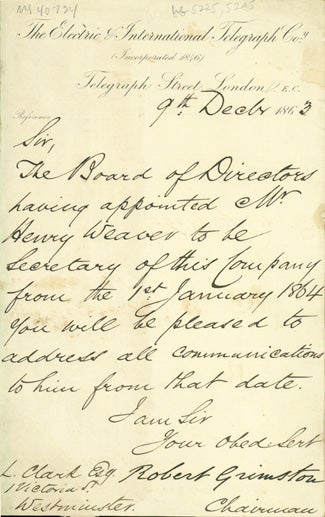 MS 40724
The Electric & International Telegraph Coy.
(Incorporated 1846)
Telegraph Street, London, E.C.
9th Decbr 1863
Reference
Sir,
The Board of Directors
having appointed Mr.
Henry Weaver to be
Secretary of this Company
from the 1st January 1864
you will be pleased to
address all communications
to him from that date.
I am Sir
Your obed. Servt
L. Clark Esq. Robert Grimston
Victoria St.
Westminster. Chairman